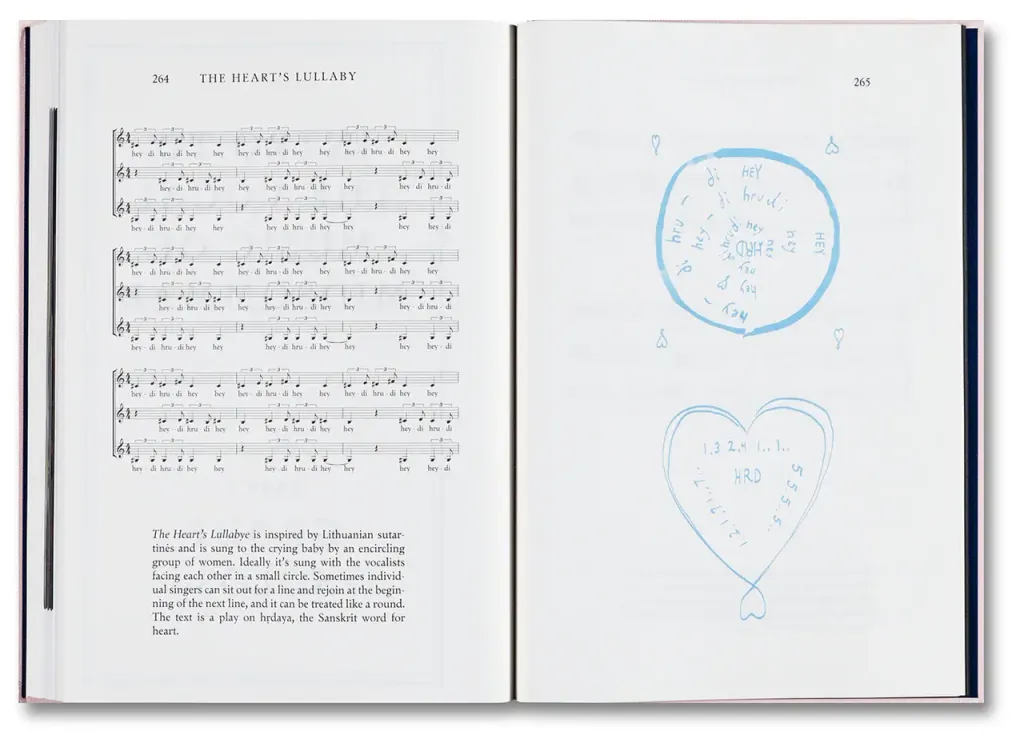 264 THE HEART'S LULLABY
hey - di hru - di hey hey hey - di hru - di hey hey hey - di hru - di hey hey
hey - di hru di hey hey - di hru - di hey hey di hru - di
hey di hru - di hey hey hey di hru - di hey hey hey hey - di
hey - di hru - di hey hey hey - di hru - di hey hey hey - di hru - di hey hey
hey - di hru di hey hey - di hru - di hey hey di hru - di
hey di hru - di hey hey hey di hru - di hey hey hey hey - di
hey - di hru - di hey hey hey - di hru - di hey hey hey - di hru - di hey hey
hey - di hru di hey hey - di hru - di hey hey di hru - di
hey di hru - di hey hey hey di hru - di hey hey hey hey - di
The Heart's Lullabye is inspired by Lithuanian sutar-
tinės and is sung to the crying baby by an encircling
group of women. Ideally it's sung with the vocalists
facing each other in a small circle. Sometimes individ-
ual singers can sit out for a line and rejoin at the begin-
ning of the next line, and it can be treated like a round.
The text is a play on hṛdaya, the Sanskrit word for
heart.
265
di HEY
di hru di
hru - hey - hrudi hey hey HEY
HRD hey
di hey
di hey
- hey
1.3 2.4 1.. 1..
HRD
5.5.5.5..